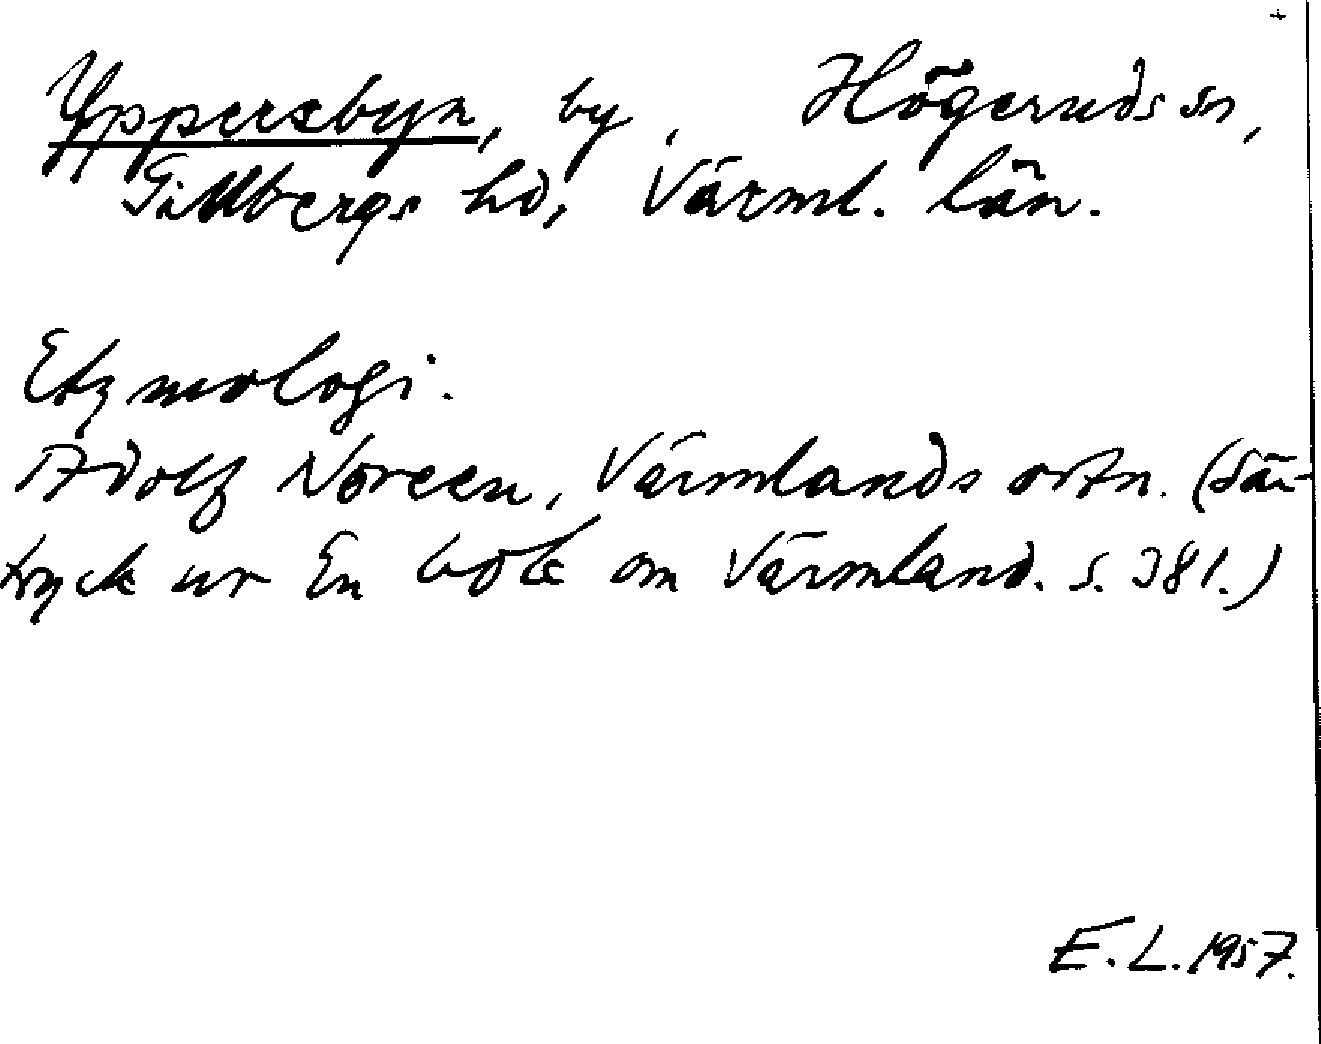 Yppersbyn, by, Högeruds sn,
Gillbergs hd, Värml. län.
Etymologi.
Adolf Noreen, Värmlands ortn. (Sär-
tryck ur En bok om Värmland. s. 381.)
E. L. 1957.